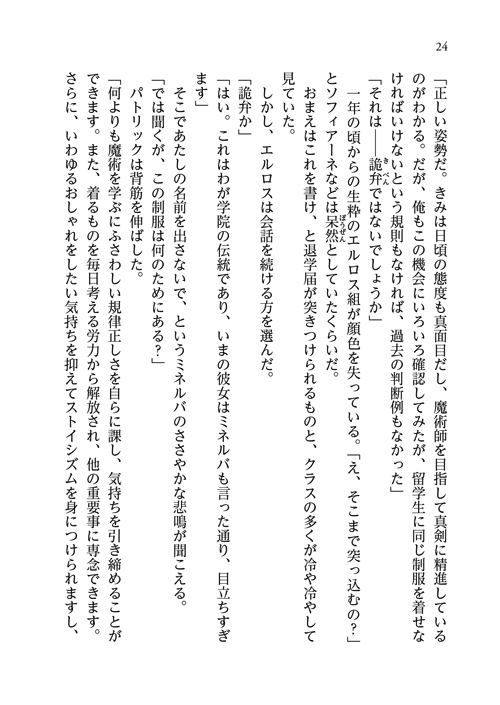 24
「正しい姿勢だ。きみは日頃の態度も真面目だし、魔術師を目指して真剣に精進している
のがわかる。だが、俺もこの機会にいろいろ確認してみたが、留学生に同じ制服を着せな
ければいけないという規則もなければ、過去の判断例もなかった」
「それは――詭弁ではないでしょうか」
　一年の頃からの生粋のエルロス組が顔色を失っている。「え、そこまで突っ込むの？」
とソフィアーネなどは呆然としていたくらいだ。
　おまえはこれを書け、と退学届が突きつけられるものと、クラスの多くが冷や冷やして
見ていた。
　しかし、エルロスは会話を続ける方を選んだ。
「詭弁か」
「はい。これはわが学院の伝統であり、いまの彼女はミネルバも言った通り、目立ちすぎ
ます」
　そこであたしの名前を出さないで、というミネルバのささやかな悲鳴が聞こえる。
「では聞くが、この制服は何のためにある？」
　パトリックは背筋を伸ばした。
「何よりも魔術を学ぶにふさわしい規律正しさを自らに課し、気持ちを引き締めることが
できます。また、着るものを毎日考える労力から解放され、他の重要事に専念できます。
さらに、いわゆるおしゃれをしたい気持ちを抑えてストイシズムを身につけられますし、